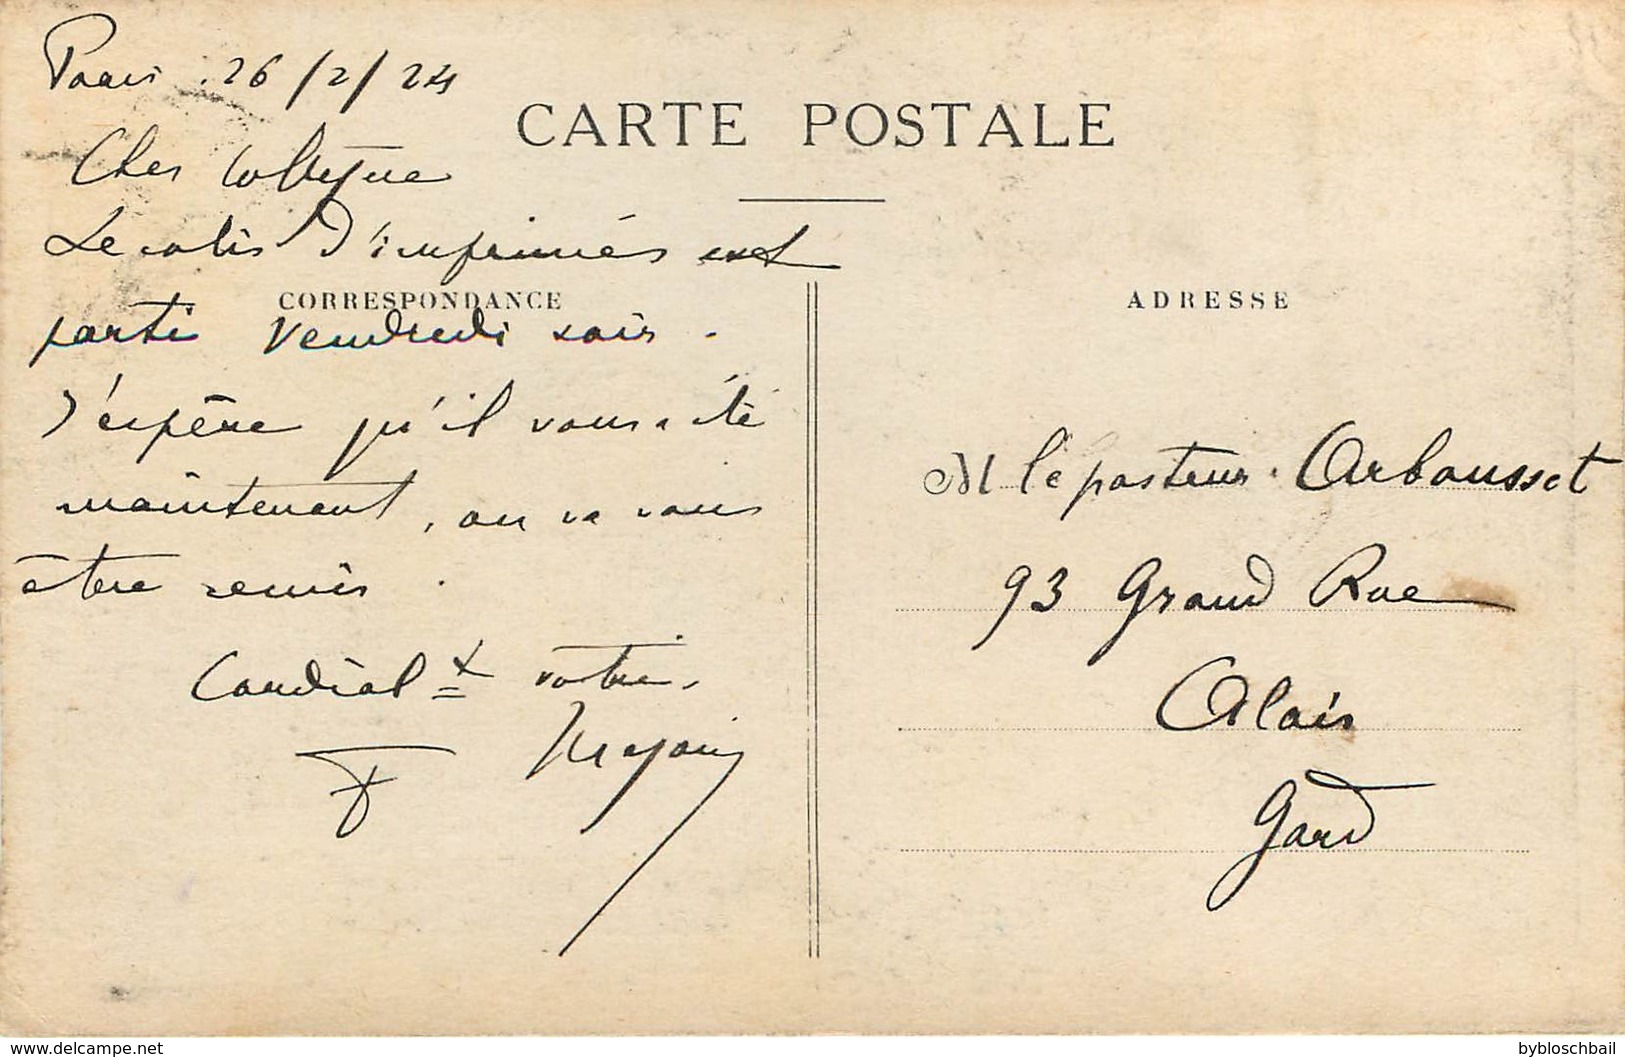 Paris . 26/2/24
CARTE POSTALE
Cher Collègue
Le colis d'imprimés est
CORRESPONDANCE
parti vendredi soir .
J'espère qu'il vous a été
maintenant, ou va vous
être remis .
Cordial t votre.
F
ADRESSE
M le pasteur Arbousset
93 Grand Rue
Alais
Gard
www.delcampe.net
bybloschbail